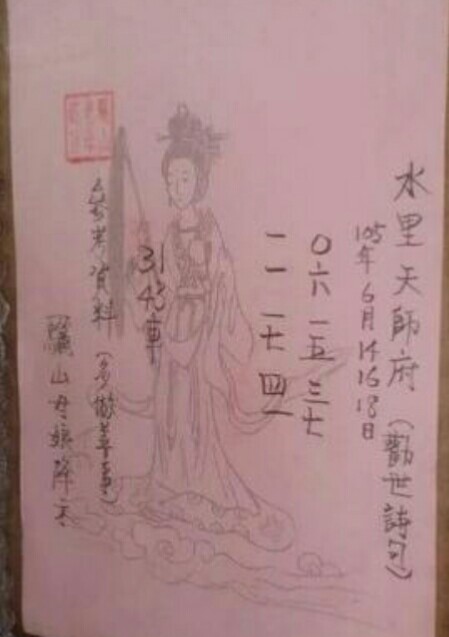 水里天師府(勸世詩句)
105年6月14 16 18日
〇六 一五 三七
一一 一七 四一
31 43車
參考資料(多做善事)
驪山母娘降文